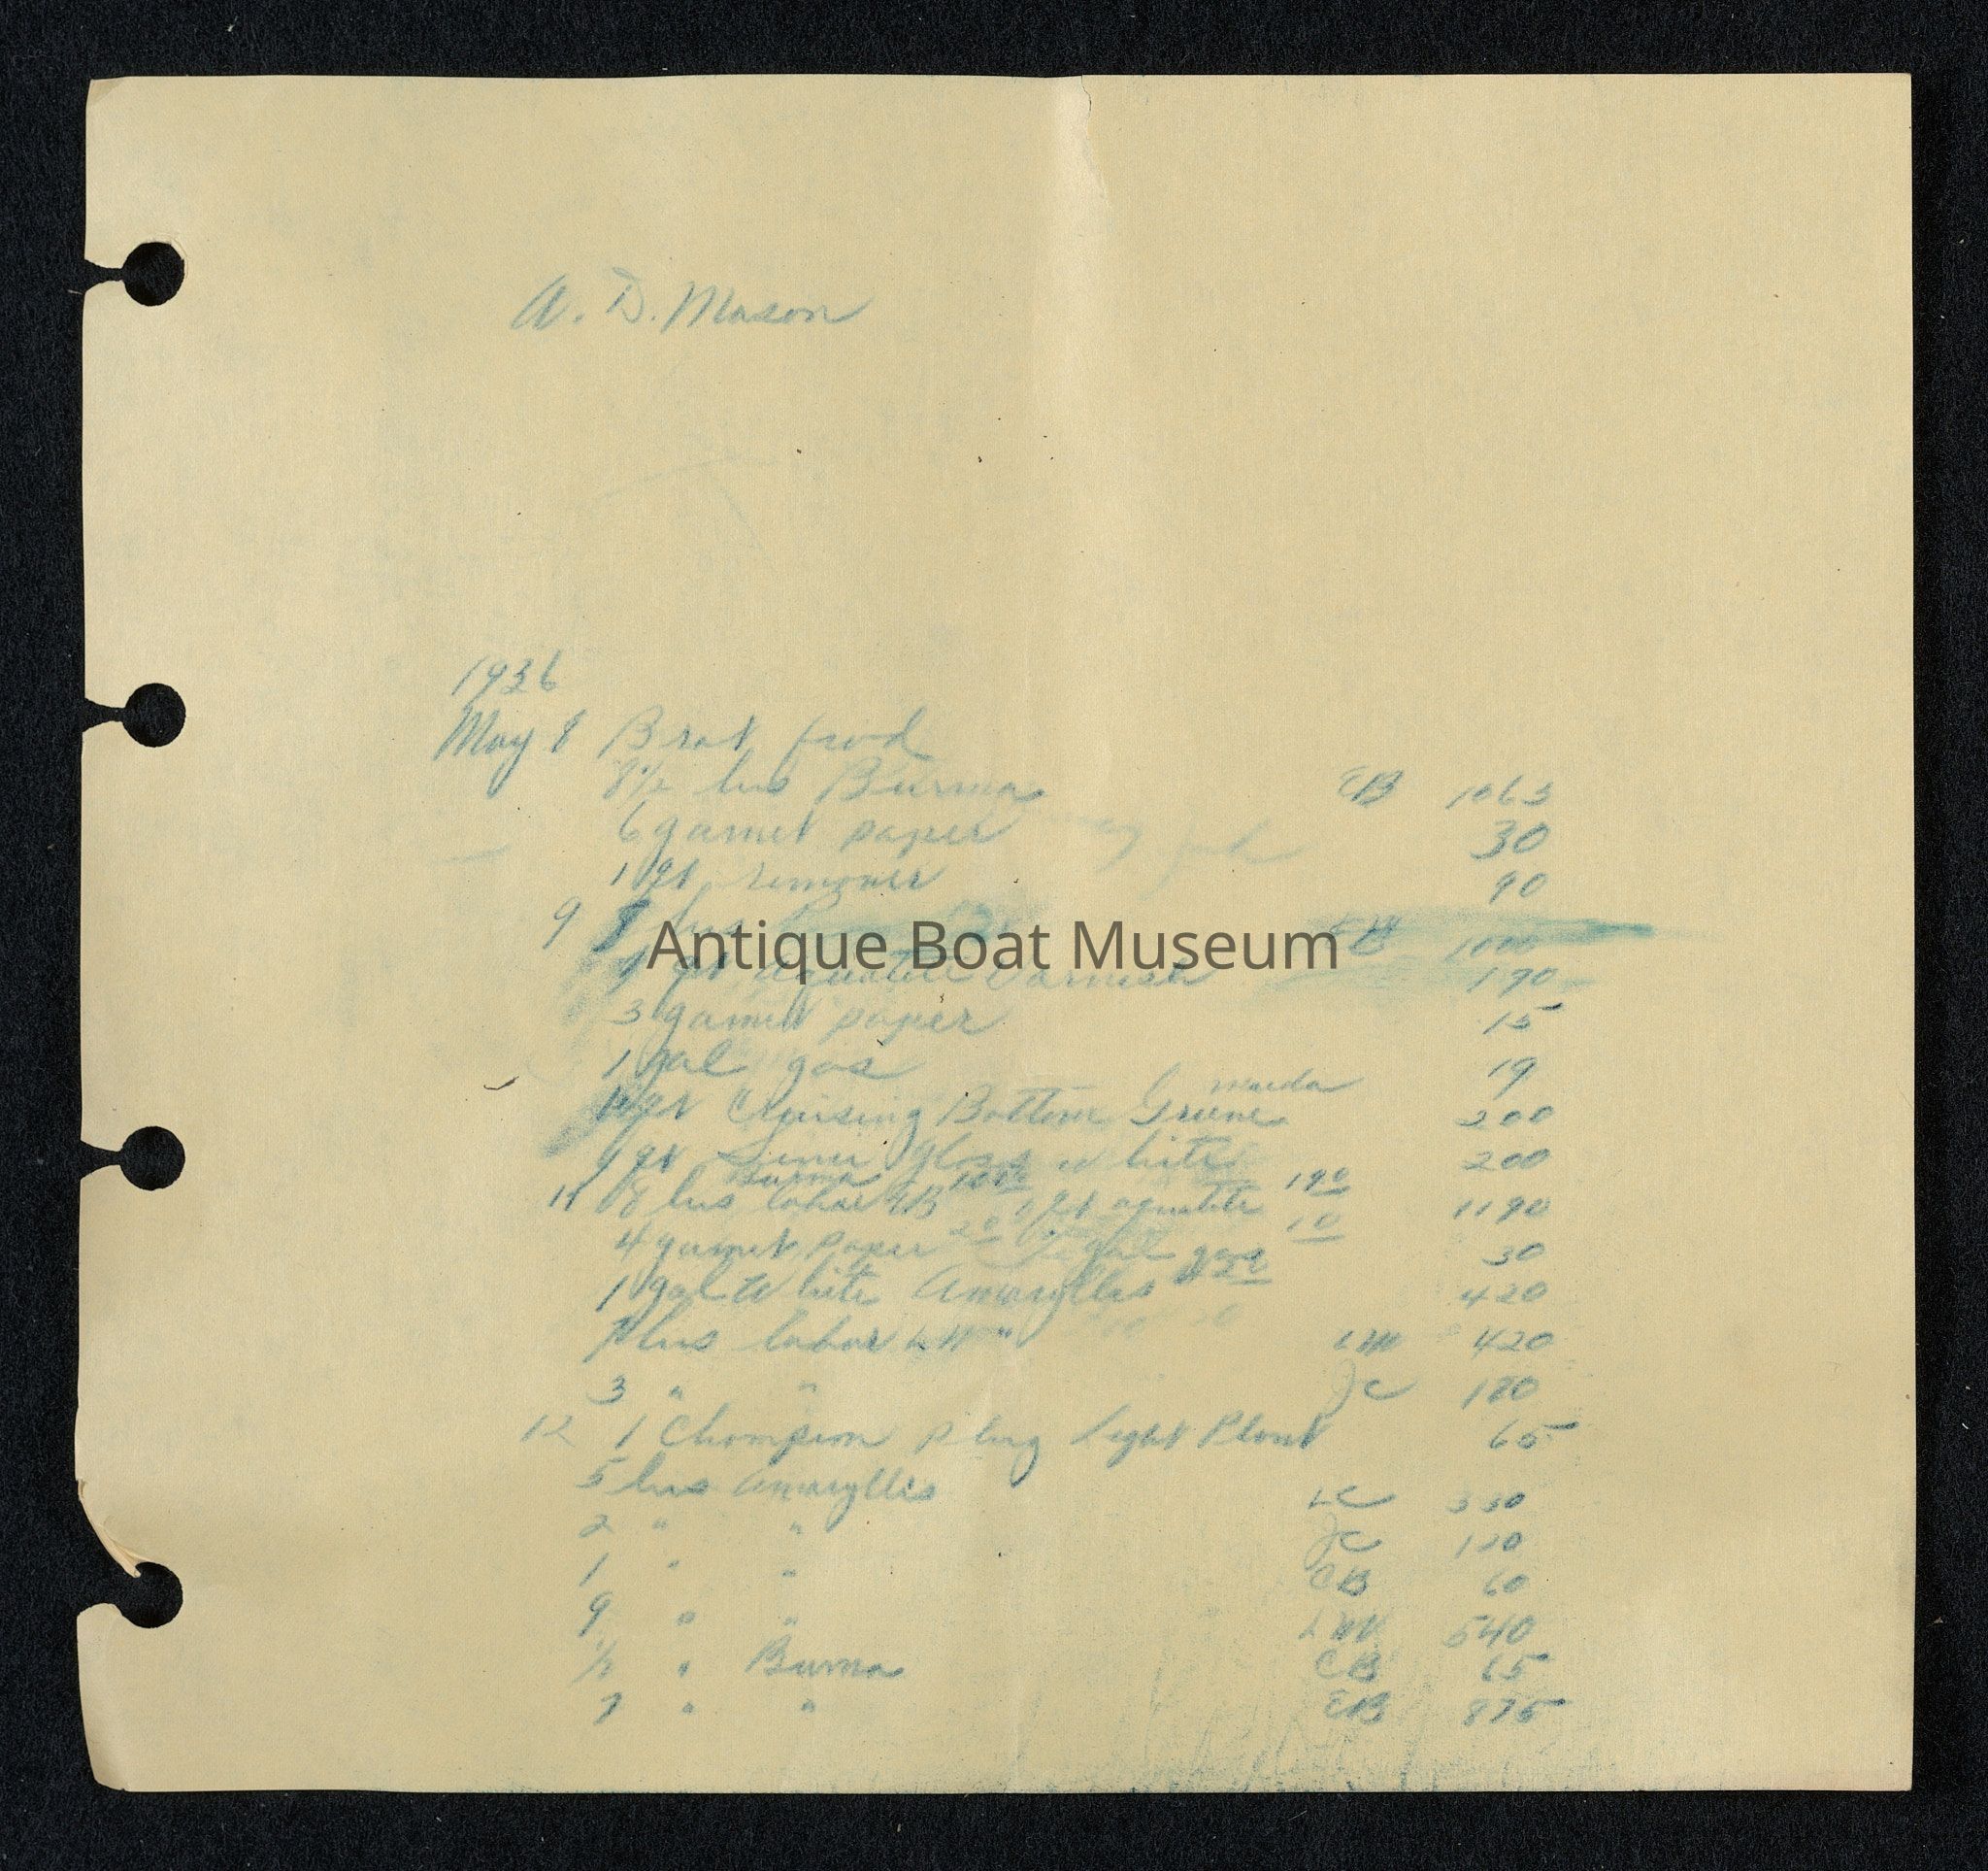 A. D. Mason
1936
May 8 Brot fwd
8 1/2 hrs Burma EB 1063
6 garnet paper 30
1 qt remover 90
9 8 hrs EB 1000
Antique Boat Museum
1 qt Aquatite Varnish 190
3 garnet paper 15
1 gal gas 19
1 qt Cruising Bottom Green 200
1 qt Gloss White 200
Burma 1000 190
11 8 hrs labor EB 1 qt aquatite 1190
4 garnet paper 20 1/2 gal gas 10 30
1 gal White Amaryllis 420 420
7 hrs labor LM " LM 420
3 " " JC 180
12 1 Champion plug Light Plant 65
5 hrs Amaryllis LC 330
2 " " JC 120
1 " " CB 60
9 " " LM 540
1/2 " Burma CB 65
7 " " EB 875